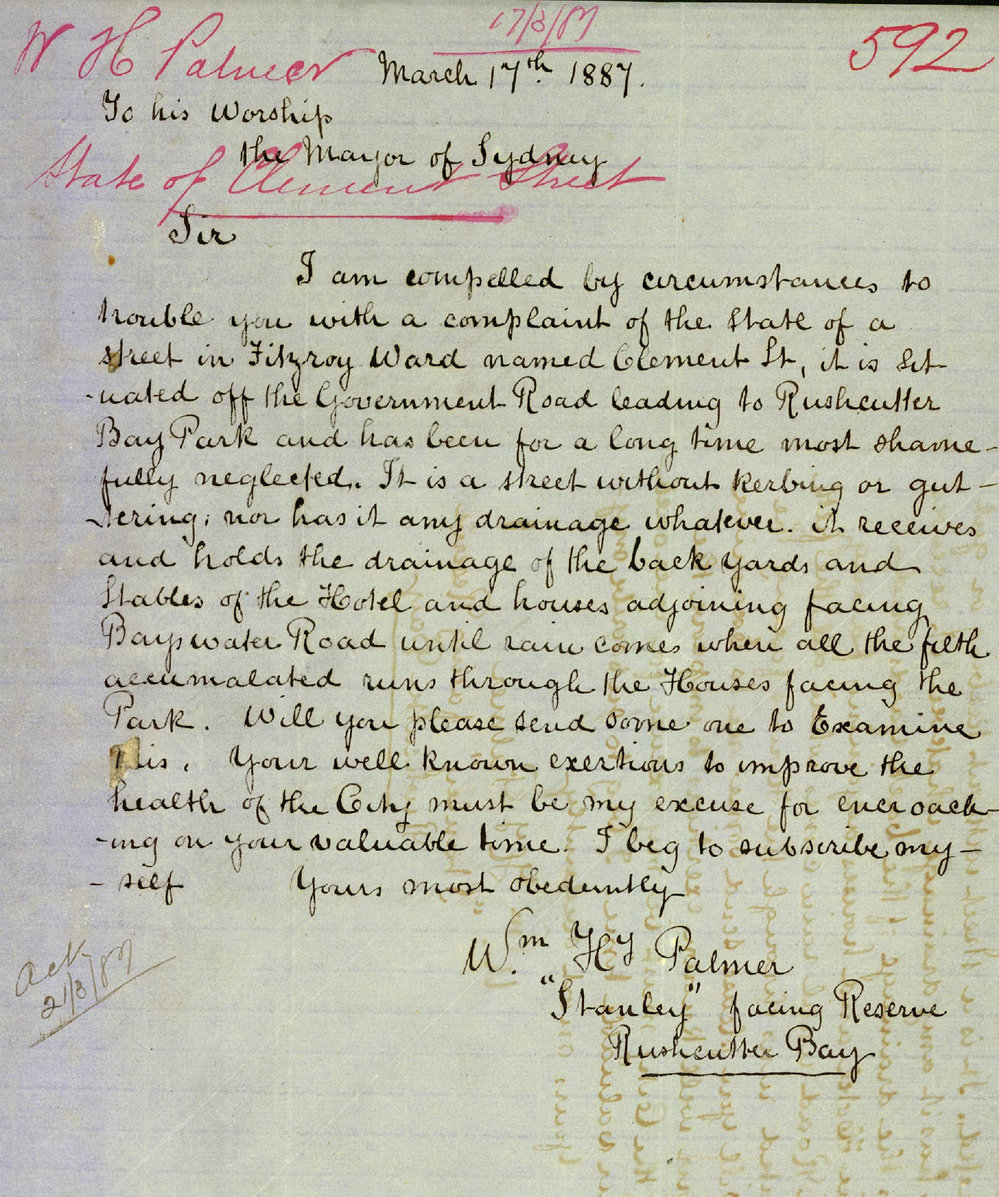 17/3/87
W H Palmer
592
March 17th 1887.
To his Worship
the Mayor of Sydney
State of Clement Street
Sir
I am compelled by circumstances to
trouble you with a complaint of the State of a
street in Fitzroy Ward named Clement St, it is sit-
-uated off the Government Road leading to Rushcutter
Bay Park and has been for a long time most shame-
fully neglected. It is a street without kerbing or gut-
-tering; nor has it any drainage whatever. it receives
and holds the drainage of the back yards and
Stables of the Hotel and houses adjoining facing
Bayswater Road until rain comes when all the filth
accumalated runs through the Houses facing the
Park. Will you please send some one to Examine
this. Your well known exertions to improve the
health of the City must be my excuse for encroach-
-ing on your valuable time. I beg to subscribe my-
-self Yours most obediently
Wm. Hy Palmer
"Stanley" facing Reserve
Rushcutter Bay
Ack
21/3/87